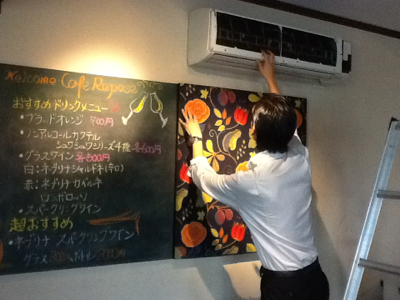 Welcome Cafe Repose
おすすめドリンクメニュー
・ブラッドオレンジ 700円
・ノンアルコールカクテル
シュワシュワシリーズ4種 各600円
・グラスワイン 各500円
白:ネブリナシャルドネ(辛口)
赤:ネブリナ カベルネ
・スパークリングワイン
超おすすめ
・ネブリナ スパークリングワイン
グラス